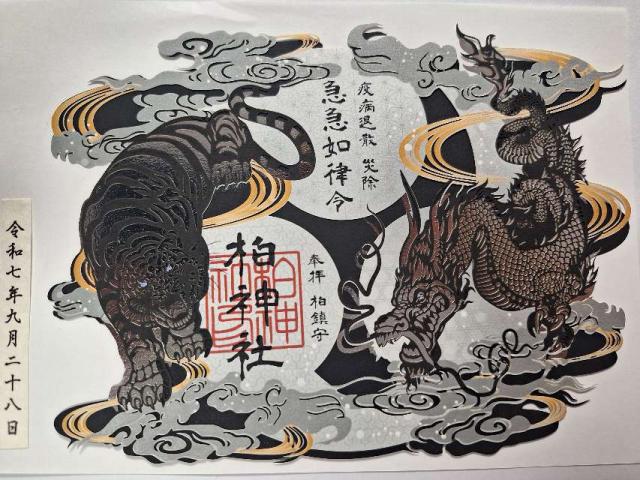 疫病退散 災除
急急如律令
奉拝 柏鎮守
柏神社
柏神社
令和七年九月二十八日